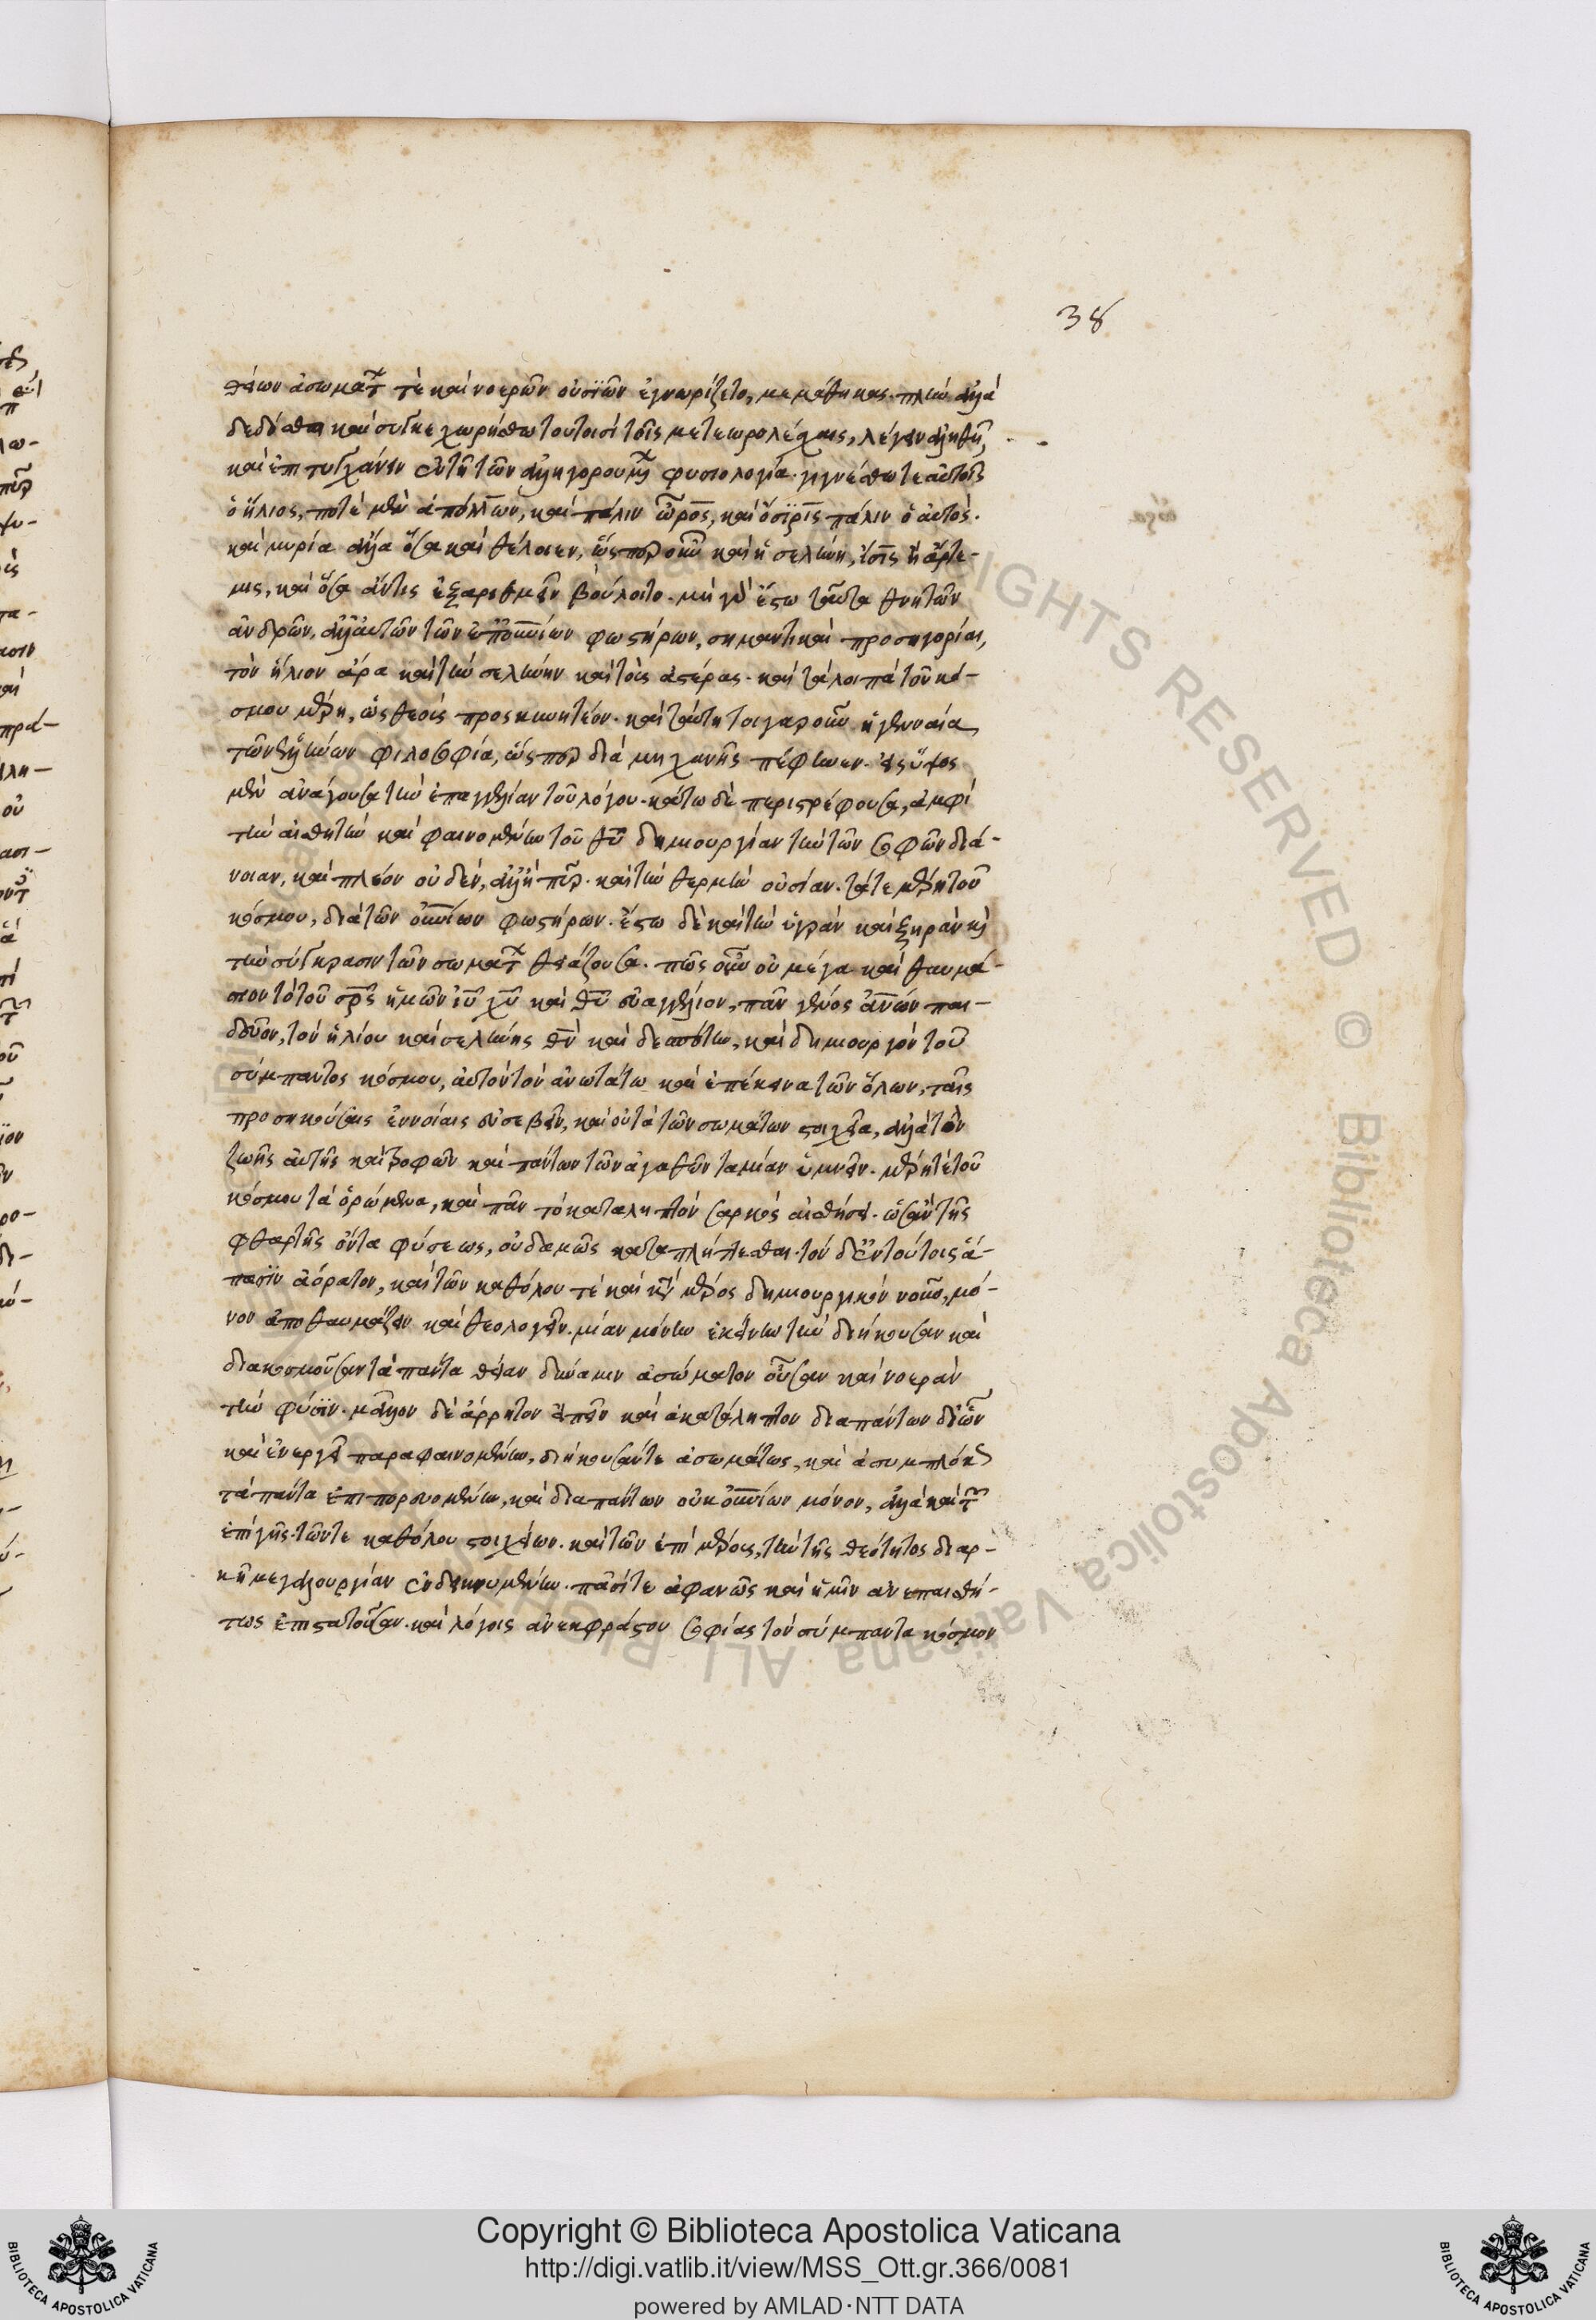 38
θείων ἀσωμάτ τὲ καὶ νοερῶν οὐσϊῶν ἐγνωρίζετο, μεμάθηκας. πλὴν ἀλλὰ
δεδόσθω καὶ συγκεχωρήσθω τουτοισὶ τοῖς μετεωρολέσχαις, λέγειν ἀληθῆ,
καὶ ἐπιτυγχάνειν ἐν τῆ τῶν ἀλληγορουμ φυσιολογία. γιγνέσθω τε αὐτοῖς
ὁ ἥλιος, ποτὲ μὲν ἀπόλλων, καὶ πάλιν ὧρος, καὶ ὄσϊρις πάλιν ὁ αὐτὸς.
καὶ μυρία ἄλλα ὅσα καὶ θέλοιεν, ὥς περ οὖν καὶ ἡ σελήνη, ἶσις ἢ ἄρτε-
μις, καὶ ὅσα ἄν τις ἐξαριθμεῖν βούλοιτο. μὴ γὰρ ἔστω ταῦτα θνητῶν
ἀνδρῶν, ἀλλ' αὐτῶν τῶν ἐπουνίων φωστήρων, σημαντικαὶ προσηγορίαι,
τὸν ἥλιον ἄρα καὶ τὴν σελήνην καὶ τοὺς ἀστέρας. καὶ τὰ λοιπὰ τοῦ κό-
σμου μέρη, ὡς θεοὺς προσκυνητέον. καὶ ταύτη τοιγαροῦν ἡ γενναία
τῶν ἑλλήνων φιλοσοφία, ὥς περ διὰ μηχανῆς πέφηνεν. εἰς ὕψος
μὲν ἀνάγουσα τὴν ἐπαγγελίαν τοῦ λόγου. κάτω δὲ περιστρέφουσα, ἀμφὶ
τὴν αἰσθητὴν καὶ φαινομένην τοῦ θυ δημιουργίαν τὴν τῶν σοφῶν διά-
νοιαν, καὶ πλέον οὐδὲν, ἀλλ' ἢ πῦρ. καὶ τὴν θερμὴν οὐσίαν. τά τε μέρη τοῦ
κόσμου, διὰ τῶν οὐνίων φωστήρων. ἔστω δὲ καὶ τὴν ὑγρὰν καὶ ξηρὰν κ
τὴν σύγκρασιν τῶν σωμάτ θειάζουσα. πῶς οὖν οὐ μέγα καὶ θαυμά-
σιον τὸ τοῦ σρς ἡμῶν ιυ χυ καὶ θυ εὐαγγέλιον, πᾶν γένος ἀνων παι-
δεῦον, τὸν ἡλίου καὶ σελήνης θν καὶ δεσπότην, καὶ δημιουργὸν τοῦ
σύμπαντος κόσμου, αὐτὸν τὸν ἀνωτάτω καὶ ἐπέκεινα τῶν ὅλων, ταῖς
προσηκούσαις ἐννοίαις εὐσεβεῖν, καὶ οὐ τὰ τῶν σωμάτων στοιχεῖα, ἀλλὰ τὸν
ζωῆς αὐτῆς καὶ τροφῶν καὶ πάντων τῶν ἀγαθῶν ταμίαν ὑμνεῖν. μέρη τὲ τοῦ
κόσμου τὰ ὁρώμενα, καὶ πᾶν τὸ καταληπτὸν σαρκὸς αἰσθήσει. ὡσὰν τῆς
φθαρτῆς ὄντα φύσεως, οὐδαμῶς καταπλήττεσθαι. τὸν δὲ ἐν τούτοις ἅ-
πασϊν ἀόρατον, καὶ τῶν καθόλου τὲ καὶ κατὰ μέρος δημιουργικὸν νοῦν, μό-
νον ἀποθαυμάζειν καὶ θεολογεῖν. μίαν μόνην ἐκείνην τὴν διήκουσαν καὶ
διακοσμοῦσαν τὰ πάντα θείαν δύναμιν ἀσώματον οὖσαν καὶ νοερὰν
τὴν φύσϊν. μᾶλλον δὲ ἄρρητον εἰπεῖν καὶ ἀκατάληπτον διαπάντων δι' ὧν
καὶ ἐνεργεῖ παραφαινομένην, διήκουσάν τε ἀσωμάτως, καὶ ἀσυμπλόκως
τὰ πάντα ἐπιπορευομένην, καὶ διαπάντων οὐκ οὐνίων μόνον, ἀλλὰ καὶ τ
ἐπὶ γῆς. τῶν τε καθόλου στοιχείων. καὶ τῶν ἐπὶ μέρους, τὴν τῆς θεότητος διαρ-
κῆ μεγαλουργίαν ἐνδεικνυμένην. πᾶσί τε ἀφανῶς καὶ ἡμῖν ἀνεπαισθή-
τως ἐπιστατοῦσαν. καὶ λόγοις ἀνεκφράστου σοφίας τὸν σύμπαντα κόσμον
Copyright © Biblioteca Apostolica Vaticana
http://digi.vatlib.it/view/MSS_Ott.gr.366/0081
powered by AMLAD·NTT DATA
BIBLIOTECA APOSTOLICA VATICANA
BIBLIOTECA APOSTOLICA VATICANA